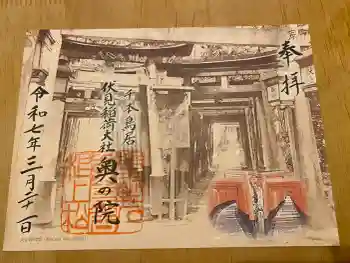 奉拝
千本鳥居
伏見稲荷大社
奥の院
令和七年三月二十一日